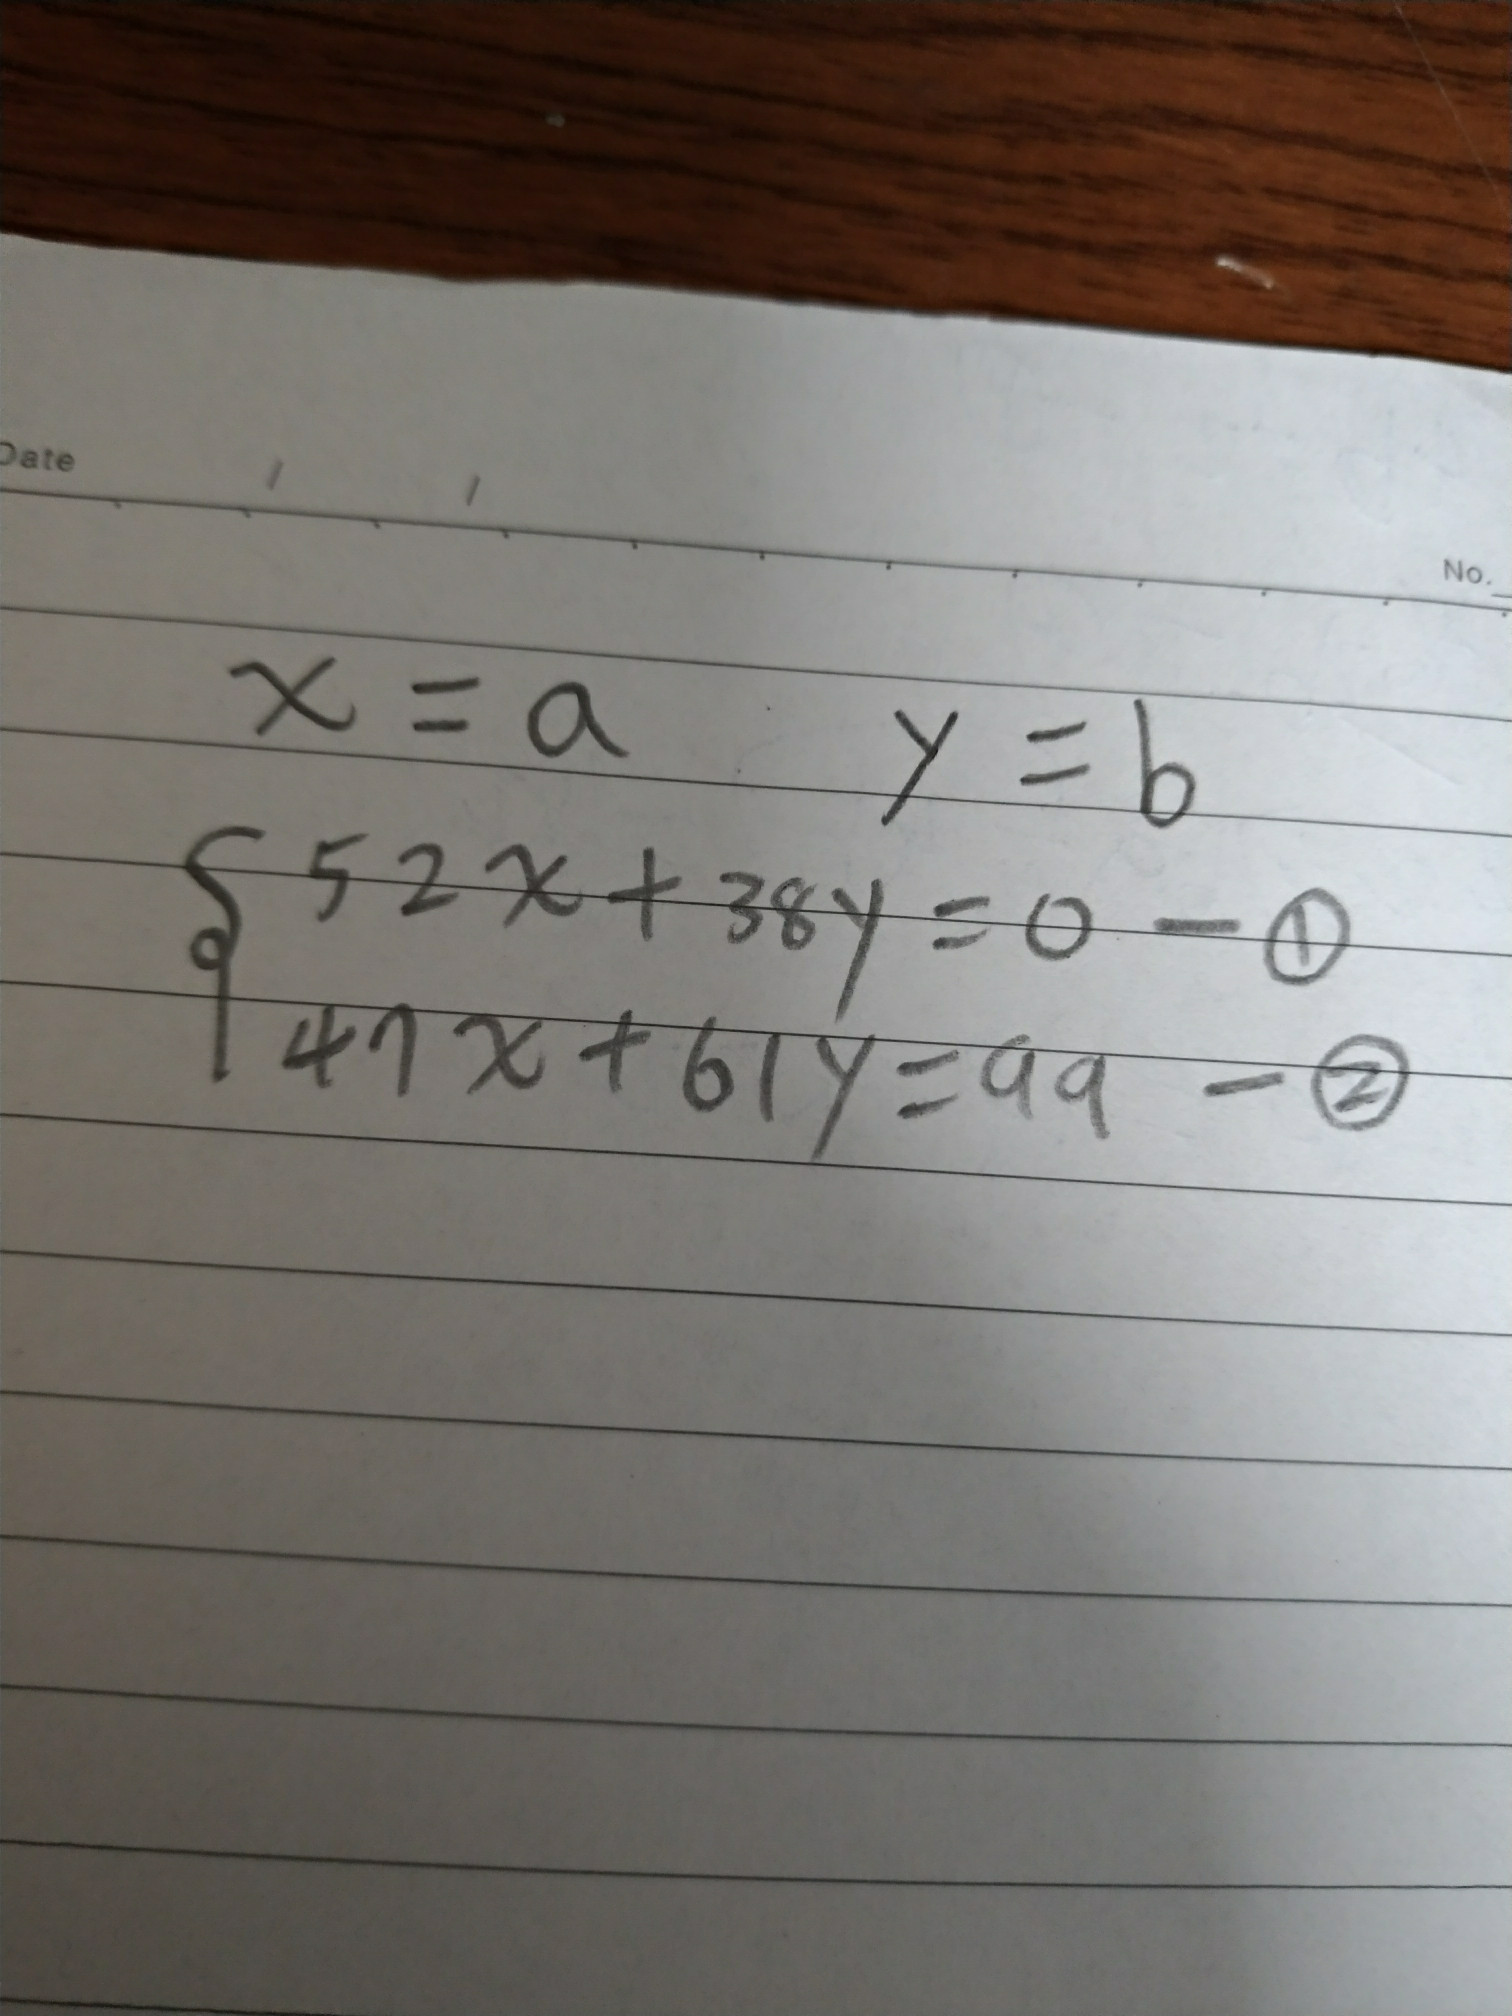 Date / /
No.
x = a y = b
52x + 38y = 0 - ①
47x + 61y = 99 - ②